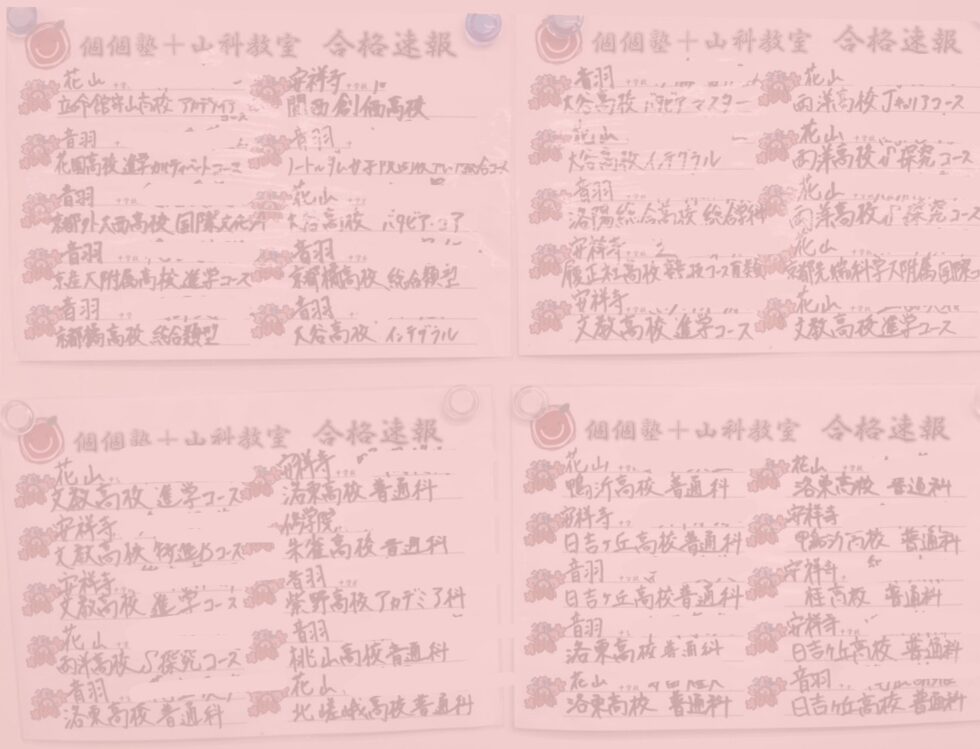 個個塾＋山科教室 合格速報
花山 中学校
立命館守山高校 アカデメイアコース
音羽
花園高校 進学カルティベートコース
音羽
京都外大西高校 国際文化
音羽
京産大附属高校 進学コース
音羽
京都橘高校 総合類型
安祥寺 中学校
関西創価高校
音羽
ノートルダム女子
花山
大谷高校 バタビア・コア
音羽
京都橘高校 総合類型
音羽
大谷高校 インテグラル
個個塾＋山科教室 合格速報
音羽 中学校
大谷高校 バタビアマスター
花山
大谷高校 インテグラル
音羽
洛陽総合高校 総合学科
安祥寺
履正社高校
安祥寺
文教高校 進学コース
花山 中学校
両洋高校 Jキャリアコース
花山
両洋高校 J探究コース
花山
両洋高校 J探究コース
花山
京都先端科学大附属 国際
花山
文教高校 進学コース
個個塾＋山科教室 合格速報
花山 中学校
文教高校 進学コース
安祥寺
文教高校 特進
安祥寺
文教高校 進学コース
花山
両洋高校 J探究コース
音羽
洛東高校 普通科
安祥寺 中学校
洛東高校 普通科
修学院
朱雀高校 普通科
音羽
紫野高校 アカデミア科
音羽
桃山高校 普通科
花山
北嵯峨高校 普通科
個個塾＋山科教室 合格速報
花山 中学校
鴨沂高校 普通科
安祥寺
日吉ヶ丘高校 普通科
音羽 中学校
日吉ヶ丘高校 普通科
音羽
洛東高校 普通科
花山
洛東高校 普通科
花山 中学校
洛東高校 普通科
安祥寺
鴨沂高校 普通科
安祥寺
桂高校 普通科
安祥寺
日吉ヶ丘高校 普通科
音羽
日吉ヶ丘高校 普通科